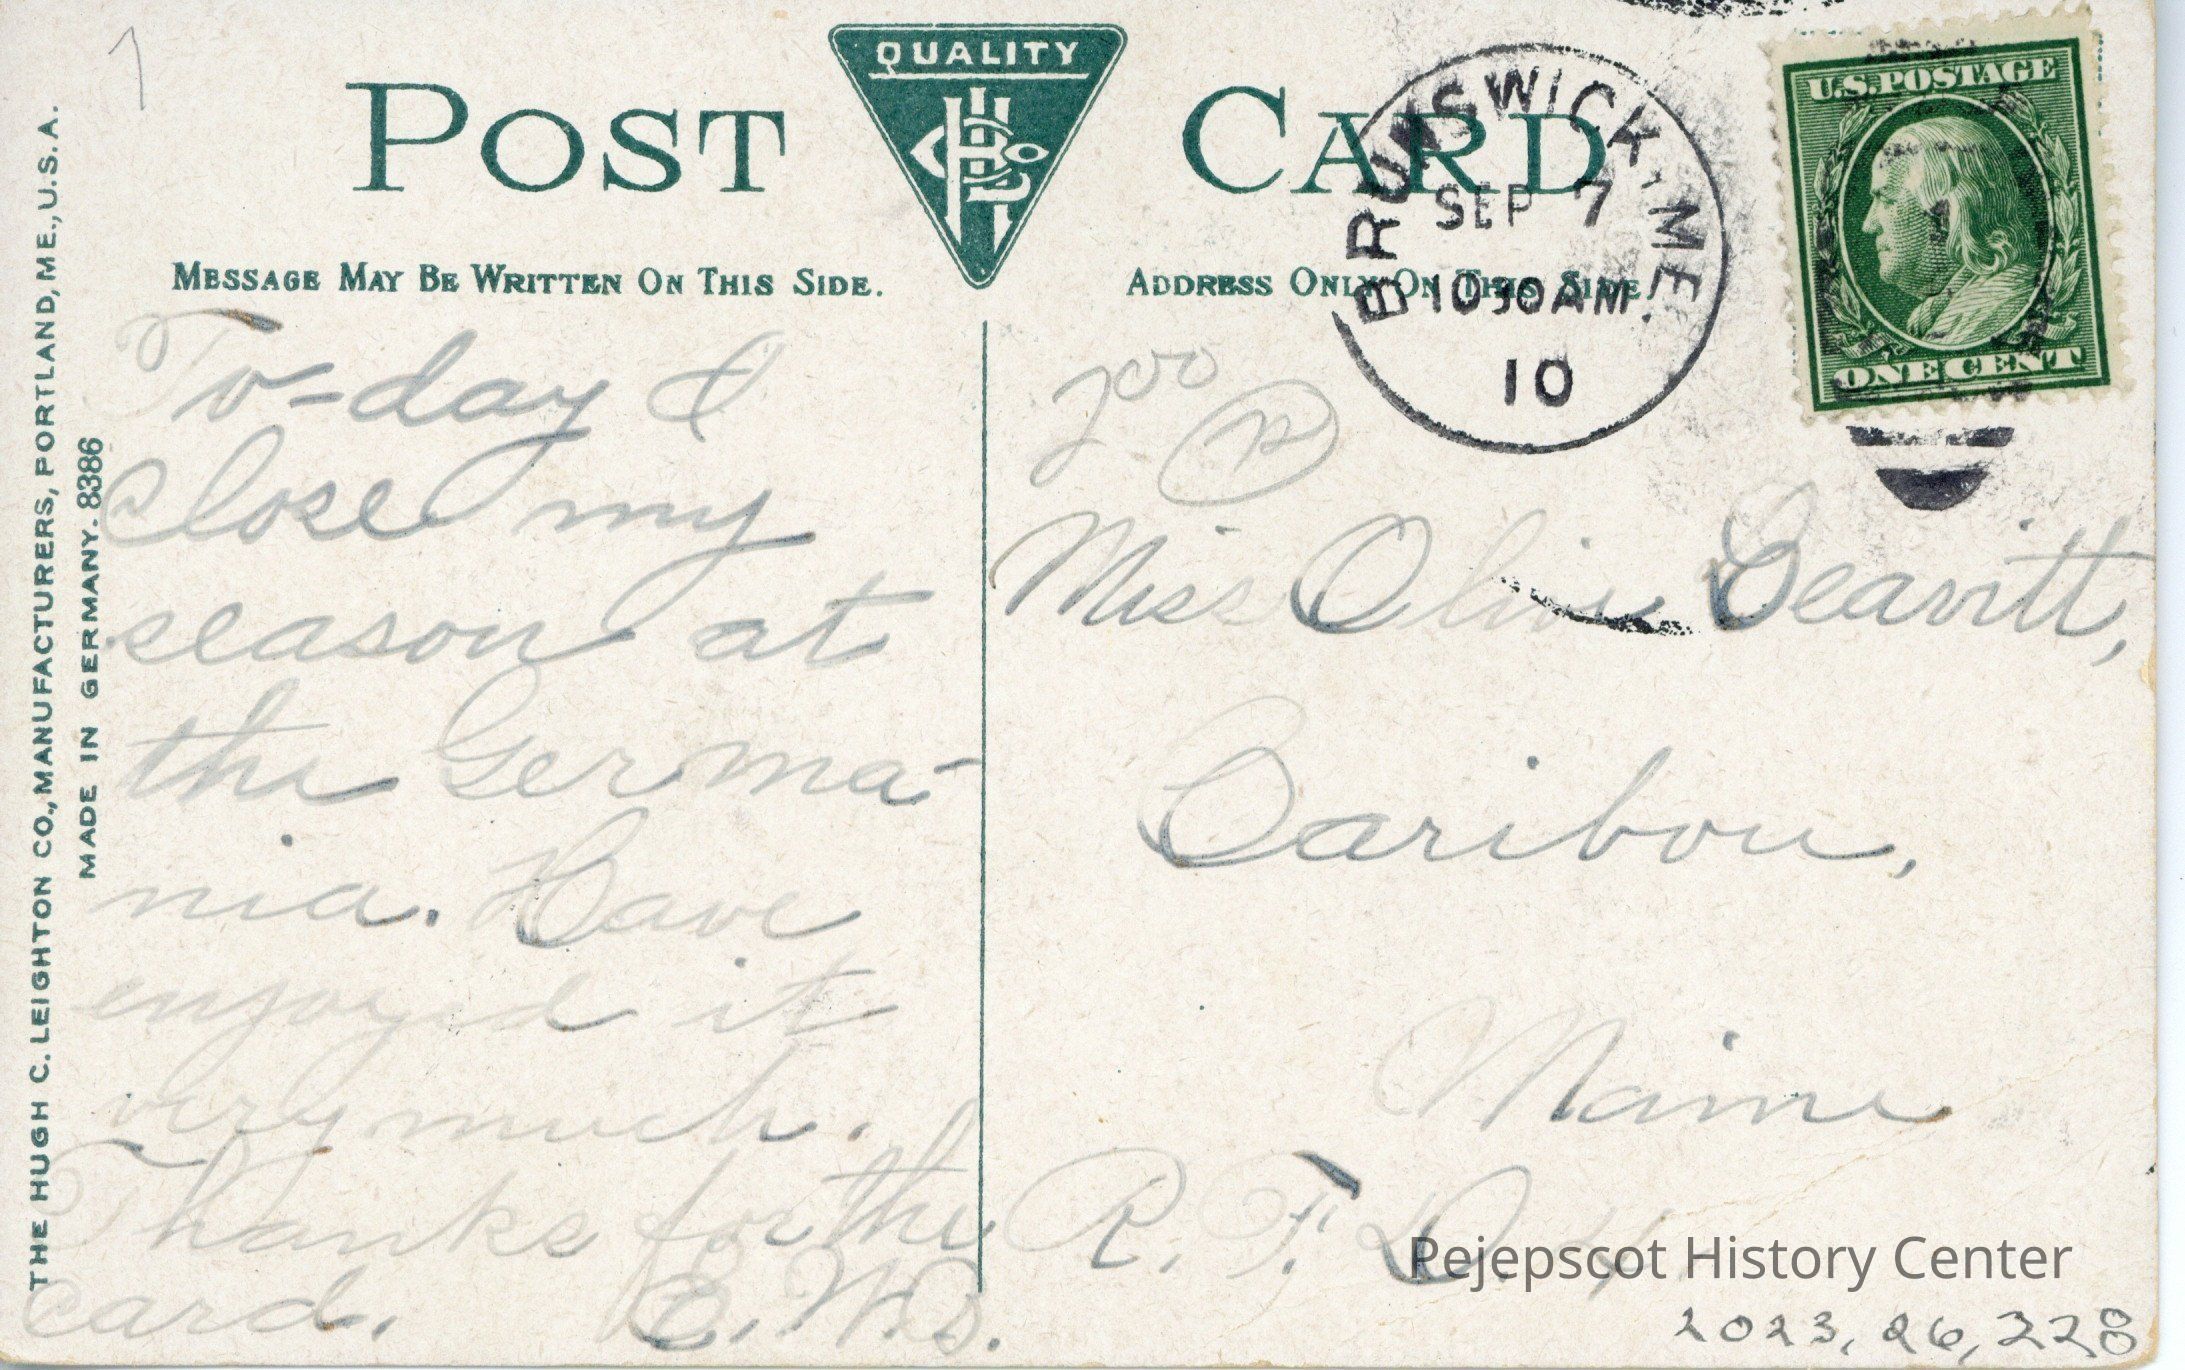 QUALITY
POST CARD
MESSAGE MAY BE WRITTEN ON THIS SIDE.
ADDRESS ONLY ON THIS SIDE.
THE HUGH C. LEIGHTON CO., MANUFACTURERS, PORTLAND, ME., U.S.A.
MADE IN GERMANY. 8386
BRUNSWICK, ME.
SEP 7
1030AM
10
U.S. POSTAGE
ONE CENT
To-day I
close my
season at
the Germa-
nia. Have
enjoyed it
very much.
Thanks for the
card.
Miss Olive Deavitt,
Caribou,
Maine
R. F. D. 4
Pejepscot History Center
2023, 26, 228